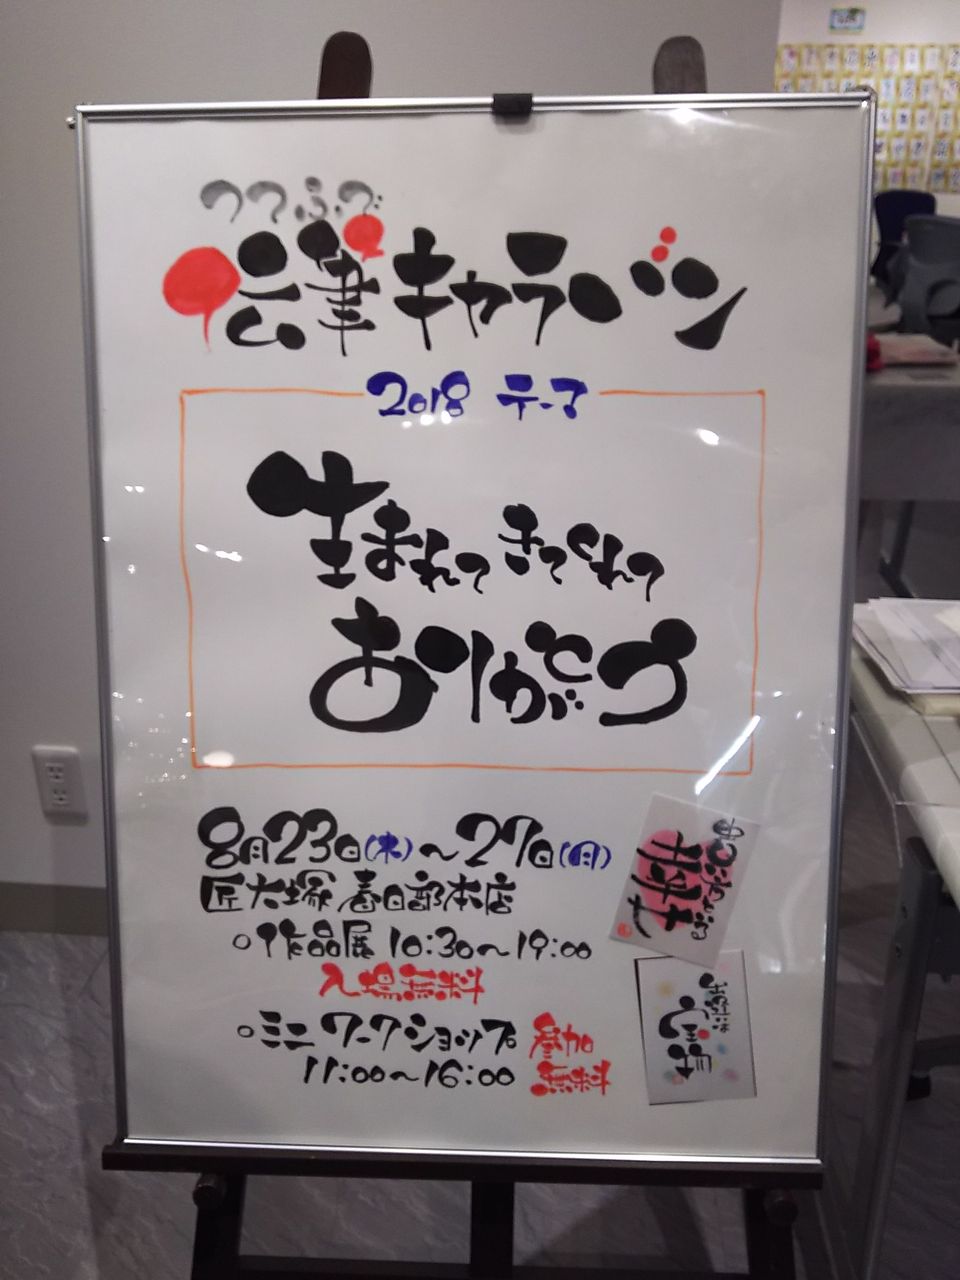 つつふで
伝筆キャラバン
2018 テーマ
生まれてきてくれて
ありがとう
8月23日(木)~27日(月)
匠大塚 春日部本店
○作品展 10:30~19:00
入場無料
○ミニワークショップ 参加
11:00~16:00 無料
出逢いは
宝物